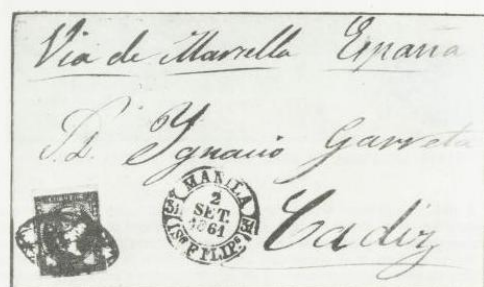 Via de Marsella España
S.D. Ygnacio Garreta
MANILA
2
SET.
1861
ISs FILIPs
Cadiz